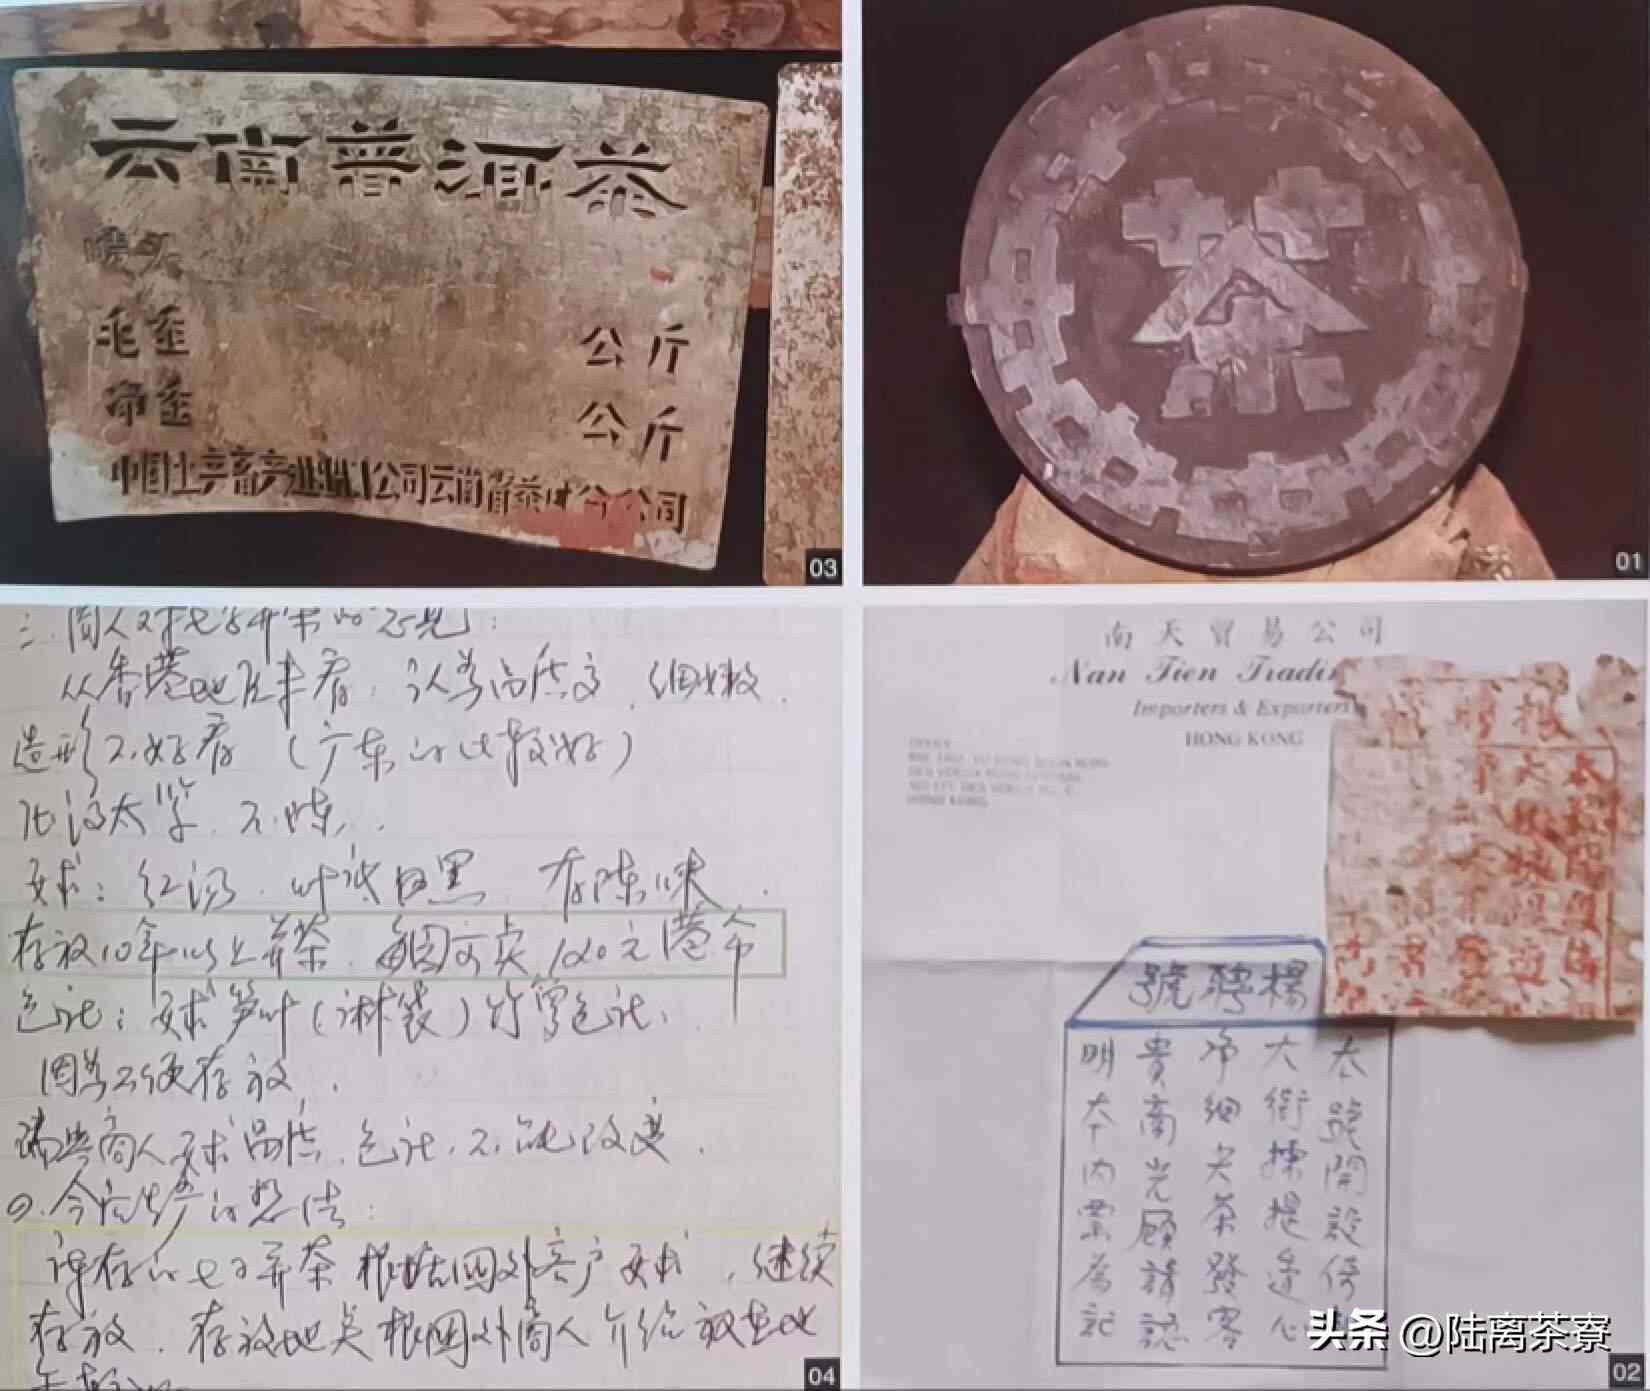 云南普洱茶
唛头
毛重 公斤
净重 公斤
中国土产畜产进出口公司云南省茶叶分公司
03
茶
01
三、商人对七子饼茶的意见：
从香港地区来看，认为品质高，细嫩，
造形不好看（广东的比较好）
泡汤太浑，不陈，
要求：红汤，叶底自黑，有陈味，
存放10年以上饼茶，每园可卖120元港币
包装：要求笋叶（麻袋）竹篮包装，
因为不便存放，
瑞典商人要求品质，包装，不能改变，
四、今后生产的想法：
库存的七子饼茶根据国外客户要求，继续
存放，存放地点根据国外商人介绍放在地
04
南天贸易公司
Nan Tien Tradin
Importers & Exporters
HONG KONG
HONG KONG
號聘楊
本號開設倚
大街揀提造心
净细尖茶發客
貴商光顧請認
明本内票為記
头条 @陆离茶寮
02